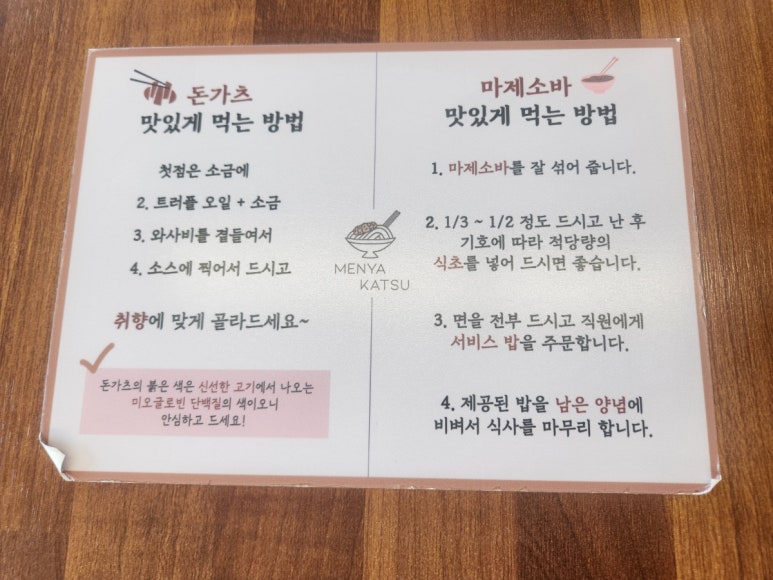 돈가츠
맛있게 먹는 방법
첫점은 소금에
2. 트러플 오일 + 소금
3. 와사비를 곁들여서
4. 소스에 찍어서 드시고
취향에 맞게 골라드세요~
돈가츠의 붉은 색은 신선한 고기에서 나오는
미오글로빈 단백질의 색이오니
안심하고 드세요!
MENYA
KATSU
마제소바
맛있게 먹는 방법
1. 마제소바를 잘 섞어 줍니다.
2. 1/3 ~ 1/2 정도 드시고 난 후
기호에 따라 적당량의
식초를 넣어 드시면 좋습니다.
3. 면을 전부 드시고 직원에게
서비스 밥을 주문합니다.
4. 제공된 밥을 남은 양념에
비벼서 식사를 마무리 합니다.